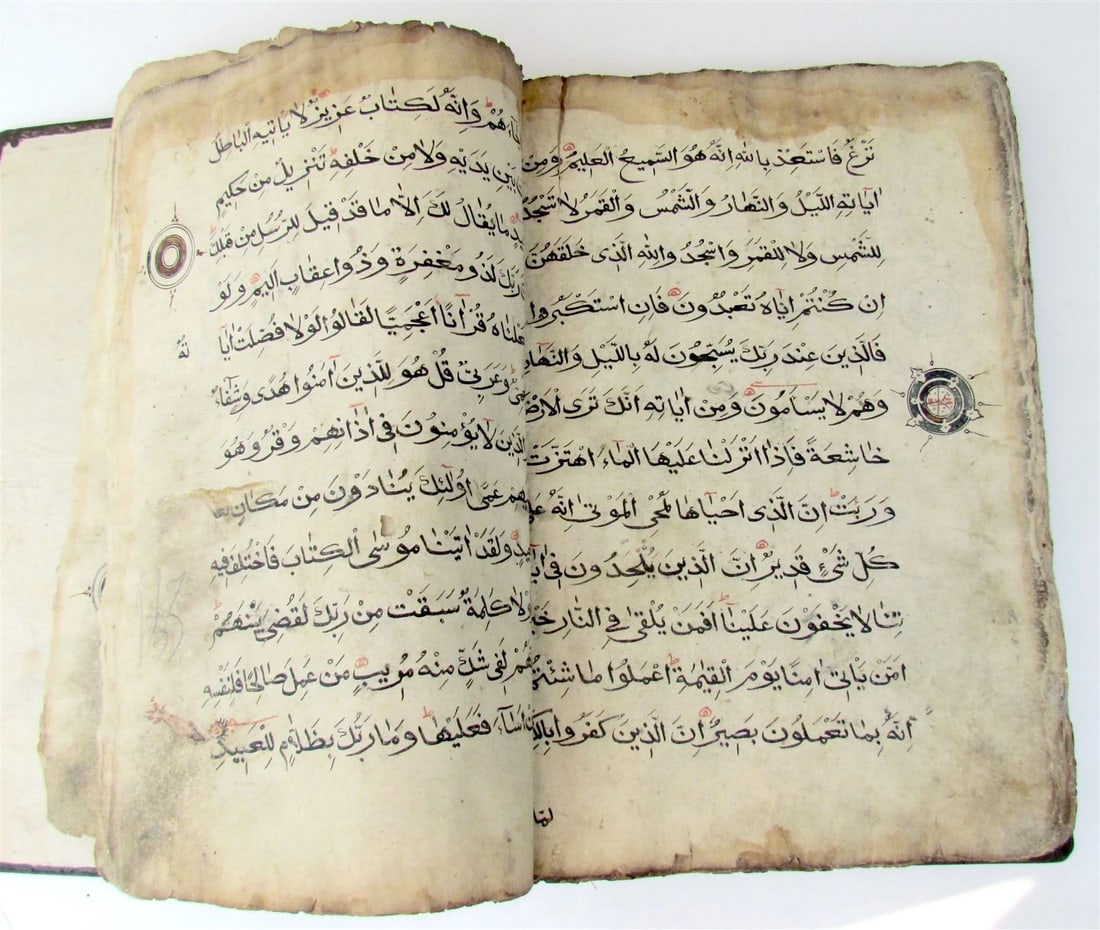 نَزْغٌ فَاسْتَعِذْ بِاللهِ اِنَّهُ هُوَ السَّمِيعُ الْعَلِيمُ وَمِنْ
اٰيَاتِهِ اللَّيْلُ وَالنَّهَارُ وَالشَّمْسُ وَالْقَمَرُ لَا تَسْجُدُ
لِلشَّمْسِ وَلَا لِلْقَمَرِ وَاسْجُدُوا لِلهِ الَّذِى خَلَقَهُنَّ
اِنْ كُنْتُمْ اِيَّاهُ تَعْبُدُونَ فَاِنِ اسْتَكْبَرُوا
فَالَّذِينَ عِنْدَ رَبِّكَ يُسَبِّحُونَ لَهُ بِالَّيْلِ وَالنَّهَارِ
وَهُمْ لَا يَسْاَمُونَ وَمِنْ اٰيَاتِهِ اَنَّكَ تَرَى الْاَرْضَ
خَاشِعَةً فَاِذَا اَنْزَلْنَا عَلَيْهَا الْمَاءَ اهْتَزَّتْ
وَرَبَتْ اِنَّ الَّذِى اَحْيَاهَا لَمُحْىِ الْمَوْتٰى اِنَّهُ عَلٰى
كُلِّ شَىْءٍ قَدِيرٌ اِنَّ الَّذِينَ يُلْحِدُونَ فِى اٰيَا
تِنَا لَا يَخْفَوْنَ عَلَيْنَا اَفَمَنْ يُلْقٰى فِى النَّارِ خَيْرٌ
اَمْ مَنْ يَاْتِى اٰمِنًا يَوْمَ الْقِيٰمَةِ اعْمَلُوا مَا شِئْتُمْ
اِنَّهُ بِمَا تَعْمَلُونَ بَصِيرٌ اِنَّ الَّذِينَ كَفَرُوا بِالذِّكْرِ
لَمَّا
جَاءَهُمْ وَاِنَّهُ لَكِتَابٌ عَزِيزٌ لَا يَاْتِيهِ الْبَاطِلُ
مِنْ بَيْنِ يَدَيْهِ وَلَا مِنْ خَلْفِهِ تَنْزِيلٌ مِنْ حَكِيمٍ
حَمِيدٍ مَا يُقَالُ لَكَ اِلَّا مَا قَدْ قِيلَ لِلرُّسُلِ مِنْ قَبْلِكَ
رَبَّكَ لَذُو مَغْفِرَةٍ وَذُو عِقَابٍ اَلِيمٍ وَلَوْ
جَعَلْنَاهُ قُرْاٰنًا اَعْجَمِيًّا لَقَالُوا لَوْلَا فُصِّلَتْ اٰيَا
تُهُ
وَعَرَبِىٌّ قُلْ هُوَ لِلَّذِينَ اٰمَنُوا هُدًى وَشِفَاءٌ
وَالَّذِينَ لَا يُؤْمِنُونَ فِى اٰذَانِهِمْ وَقْرٌ وَهُوَ
عَلَيْهِمْ عَمًى اُولٰئِكَ يُنَادَوْنَ مِنْ مَكَانٍ
بَعِيدٍ وَلَقَدْ اٰتَيْنَا مُوسَى الْكِتَابَ فَاخْتُلِفَ فِيهِ
وَلَوْلَا كَلِمَةٌ سَبَقَتْ مِنْ رَبِّكَ لَقُضِىَ بَيْنَهُمْ
وَاِنَّهُمْ لَفِى شَكٍّ مِنْهُ مُرِيبٍ مَنْ عَمِلَ صَالِحًا فَلِنَفْسِهِ
وَمَنْ اَسَاءَ فَعَلَيْهَا وَمَا رَبُّكَ بِظَلَّامٍ لِلْعَبِيدِ